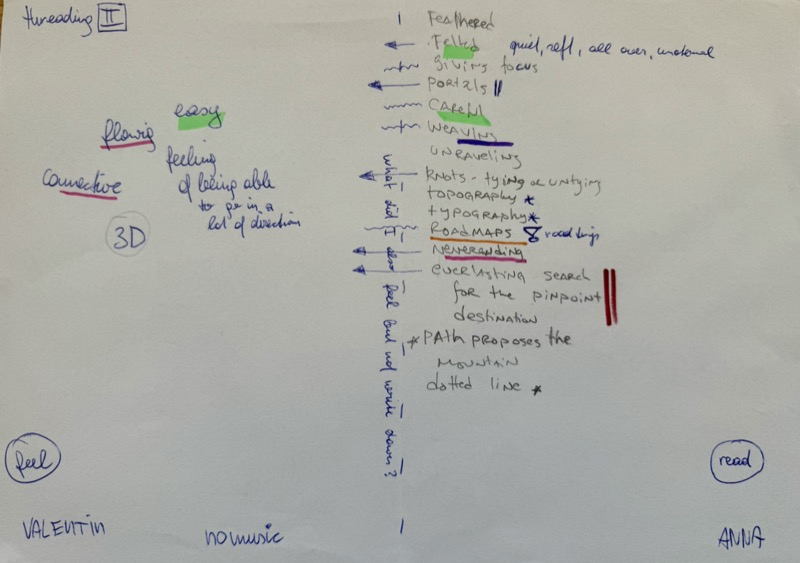 threading II
easy
flowig
feeling
Connective
of being able
to go in a
lot of direction
3D
feel
VALENTIN
no music
what did I also feel but not write down?
Feathered
Felted quiet, refl, all over, unotonal
giving focus
PORTALS
CAREFUL
WEAVING
UNRAVELING
KNOTS - tying or untying
TOPOGRAPHY *
TYPOGRAPHY *
ROADMAPS & road tings
NEVERANDING
EVERLASTING SEARCH
FOR THE PINPOINT
DESTINATION
* PATH PROPOSES the
MOUNTAIN
dotted LINE *
read
ANNA